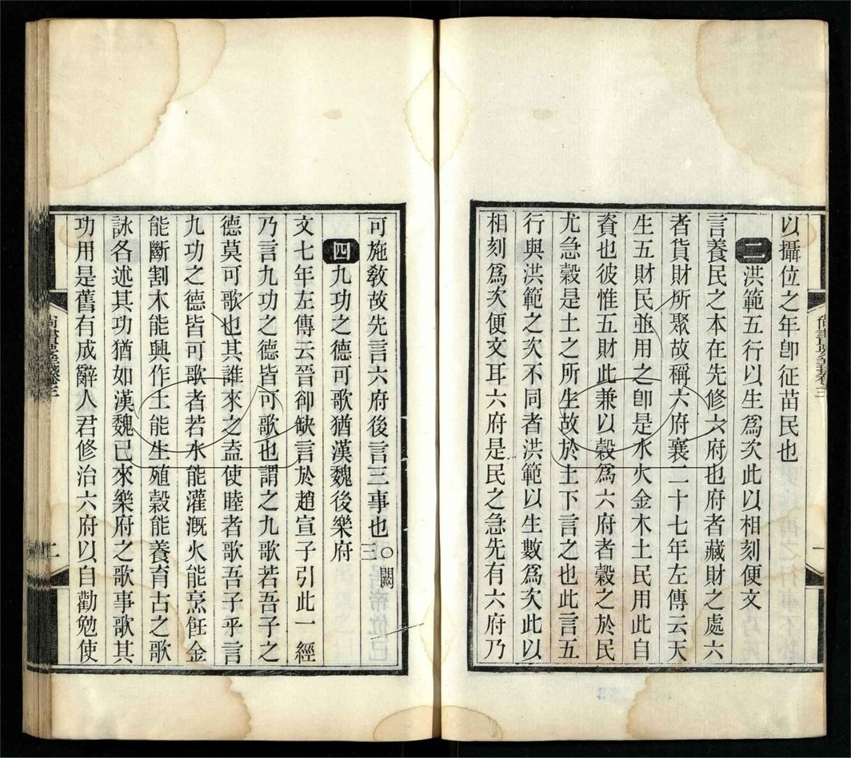 以攝位之年卽征苗民也
二洪範五行以生爲次此以相刻便文
言養民之本在先修六府也府者藏財之處六
者貨財所聚故稱六府襄二十七年左傳云天
生五財民並用之卽是水火金木土民用此自
資也彼惟五財此兼以穀爲六府者穀之於民
尤急穀是土之所生故於土下言之也此言五
行與洪範之次不同者洪範以生數爲次此以
相刻爲次便文耳六府是民之急先有六府乃
可施敎故先言六府後言三事也○闕三
四九功之德可歌猶漢魏後樂府
文七年左傳云晉卻缺言於趙宣子引此一經
乃言九功之德皆可歌也謂之九歌若吾子之
德莫可歌也其誰來之盍使睦者歌吾子乎言
九功之德皆可歌者若水能灌漑火能烹飪金
能斷割木能興作土能生殖穀能養育古之歌
詠各述其功猶如漢魏已來樂府之歌事歌其
功用是舊有成辭人君修治六府以自勸勉使
尚書要義卷三
二